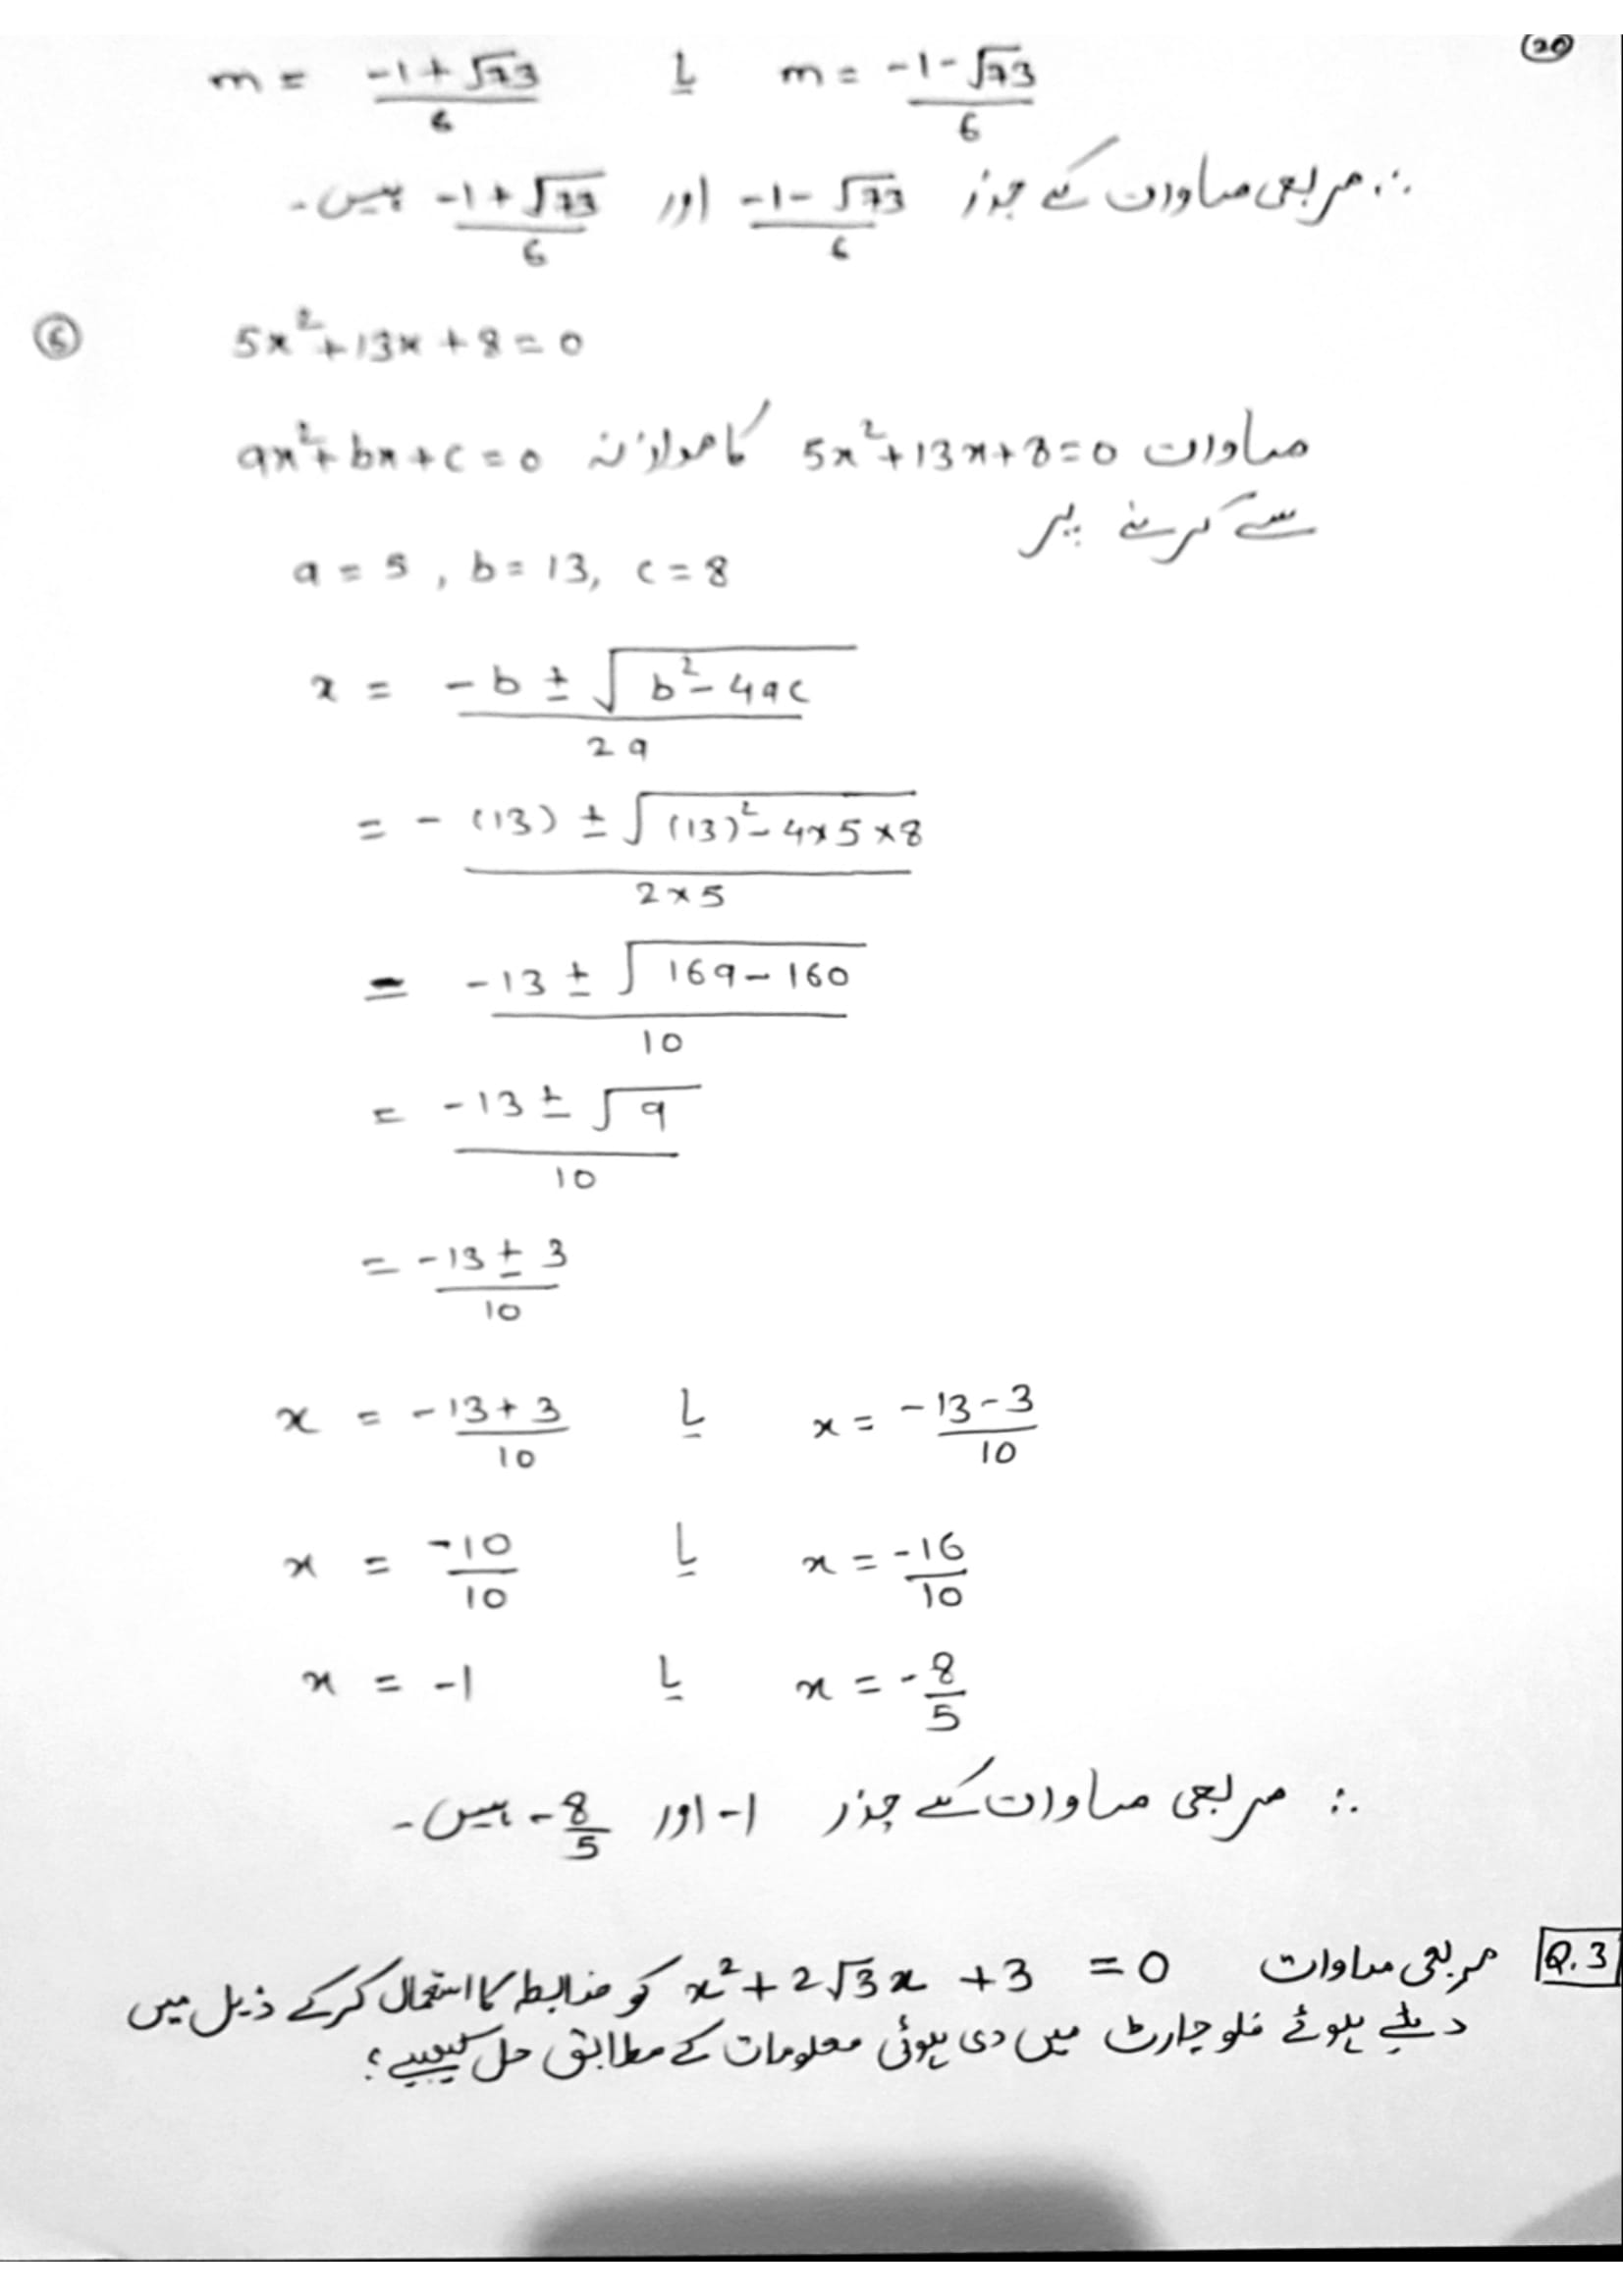 (20)
m = (-1+√73)/6 یا m = (-1-√73)/6
∴ مربعی مساوات کے جذر (-1-√73)/6 اور (-1+√73)/6 ہیں۔
(5) 5x²+13x+8=0
مساوات 5x²+13x+8=0 کا موازنہ ax²+bx+c=0
سے کرنے پر
a = 5, b = 13, c = 8
x = (-b ± √(b²-4ac))/2a
= (-(13) ± √((13)²-4×5×8))/(2×5)
= (-13 ± √(169-160))/10
= (-13 ± √9)/10
= (-13 ± 3)/10
x = (-13+3)/10 یا x = (-13-3)/10
x = -10/10 یا x = -16/10
x = -1 یا x = -8/5
∴ مربعی مساوات کے جذر -1 اور -8/5 ہیں۔
Q.3 مربعی مساوات x²+2√3x+3=0 کو ضابطہ کا استعمال کرکے ذیل میں
دیئے ہوئے فلو چارٹ میں دی ہوئی معلومات کے مطابق حل کیجیے؟